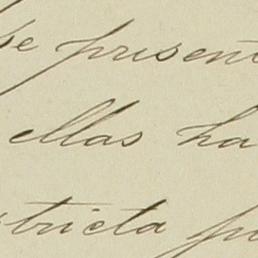 se presen
ellas ha
tricta